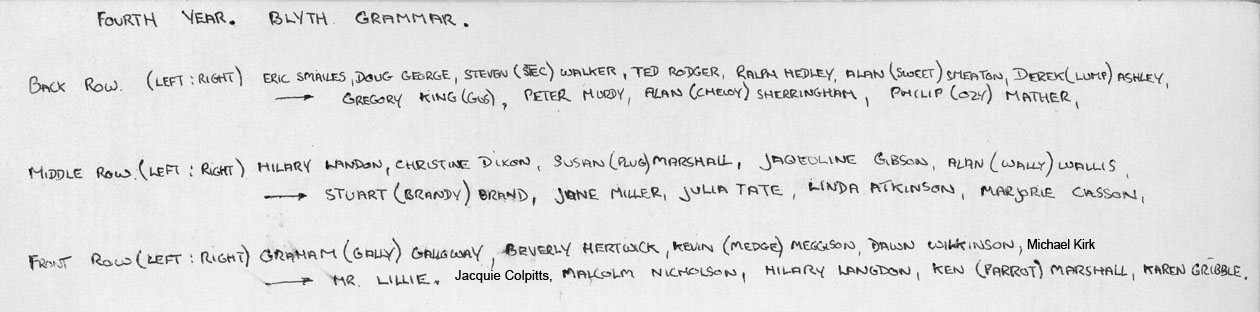 FOURTH YEAR. BLYTH GRAMMAR.
BACK ROW. (LEFT : RIGHT) ERIC SMAILES, DOUG GEORGE, STEVEN (SEC) WALKER, TED RODGER, RALPH HEDLEY, ALAN (SWEET) SMEATON, DEREK (LUMP) ASHLEY,
→ GREGORY KING (GUS), PETER MURDY, ALAN (CHEWY) SHERRINGHAM, PHILIP (OZY) MATHER,
MIDDLE ROW. (LEFT : RIGHT) HILARY LANDON, CHRISTINE DIXON, SUSAN (PLUG) MARSHALL, JAQEULINE GIBSON, ALAN (WALLY) WALLIS,
→ STUART (BRANDY) BRAND, JANE MILLER, JULIA TATE, LINDA ATKINSON, MARJORIE CASSON,
FRONT ROW (LEFT : RIGHT) GRAHAM (GALLY) GALLOWAY, BEVERLY HERTWICK, KEVIN (MEDGE) MEGGISON, DAWN WILKINSON, Michael Kirk
→ MR. LILLIE. Jacquie Colpitts, MALCOLM NICHOLSON, HILARY LANGDON, KEN (PARROT) MARSHALL, KAREN GRIBBLE.